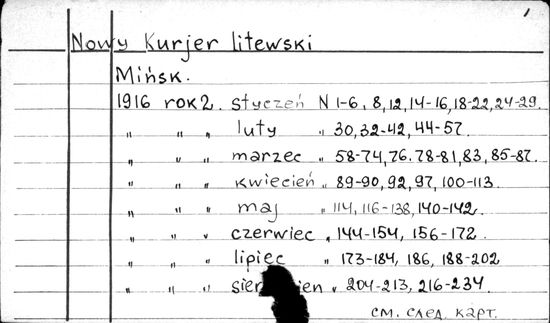 Nowy Kurjer litewski
Mińsk.
1916 rok 2. styczeń N 1-6, 8, 12, 14-16, 18-22, 24-29.
" " " luty " 30, 32-42, 44-57.
" " " marzec " 58-74, 76. 78-81, 83, 85-87.
" " " kwiecień " 89-90, 92, 97, 100-113.
" " " maj " 114, 116-138, 140-142.
" " " czerwiec " 144-154, 156-172.
" " " lipiec " 173-184, 186, 188-202
" " " " 204-213, 216-234.
см. след. карт.